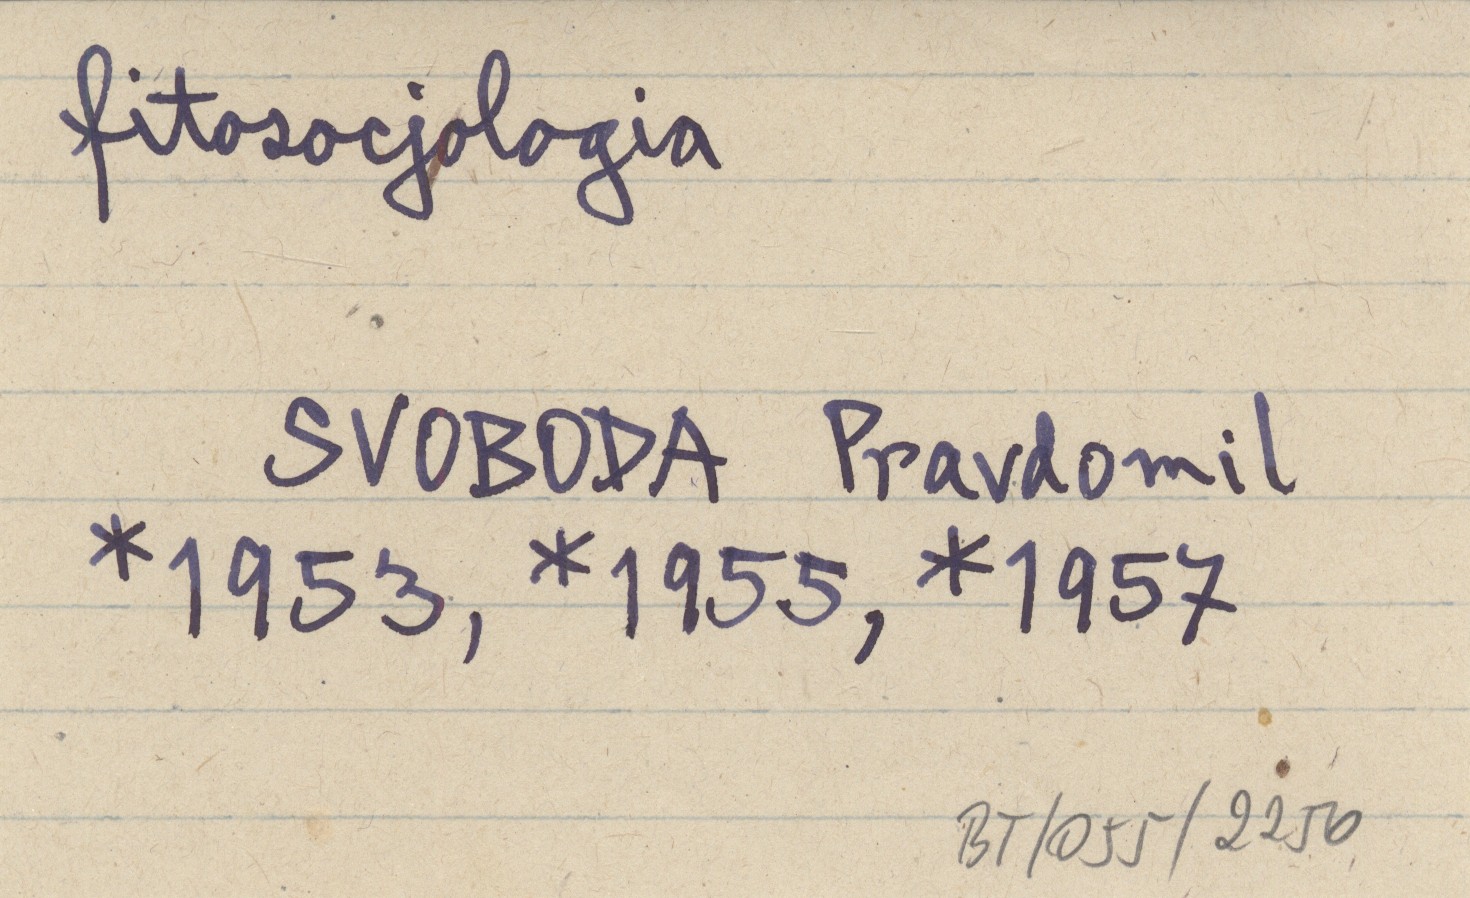 fitosocjologia
SVOBODA Pravdomil
*1953, *1955, *1957
BT/055/2250